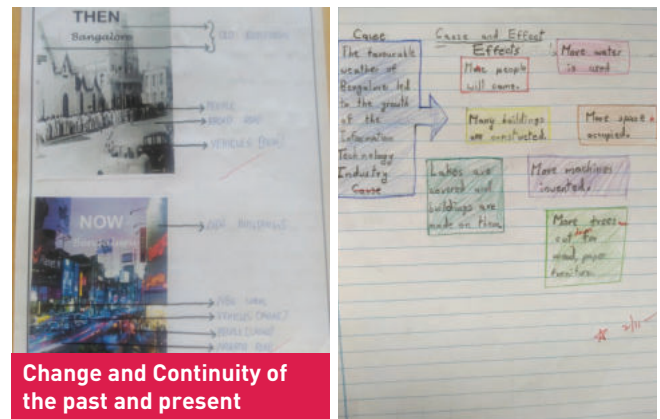 THEN
Bangalore
OLD BUILDINGS
PEOPLE
VEHICLES
NOW
Bangalore
Change and Continuity of
the past and present
Cause
Cause and Effect
The favourable
weather of
Bangalore led
to the growth
of the
Information
Technology
Industry
Cause
Effects
More people
will come.
More water
is used
Many buildings
are constructed.
More space
occupied.
Lakes are
covered and
buildings are
made on them.
More machines
invented.
More trees
cut for
wood, paper
furniture.
2/11